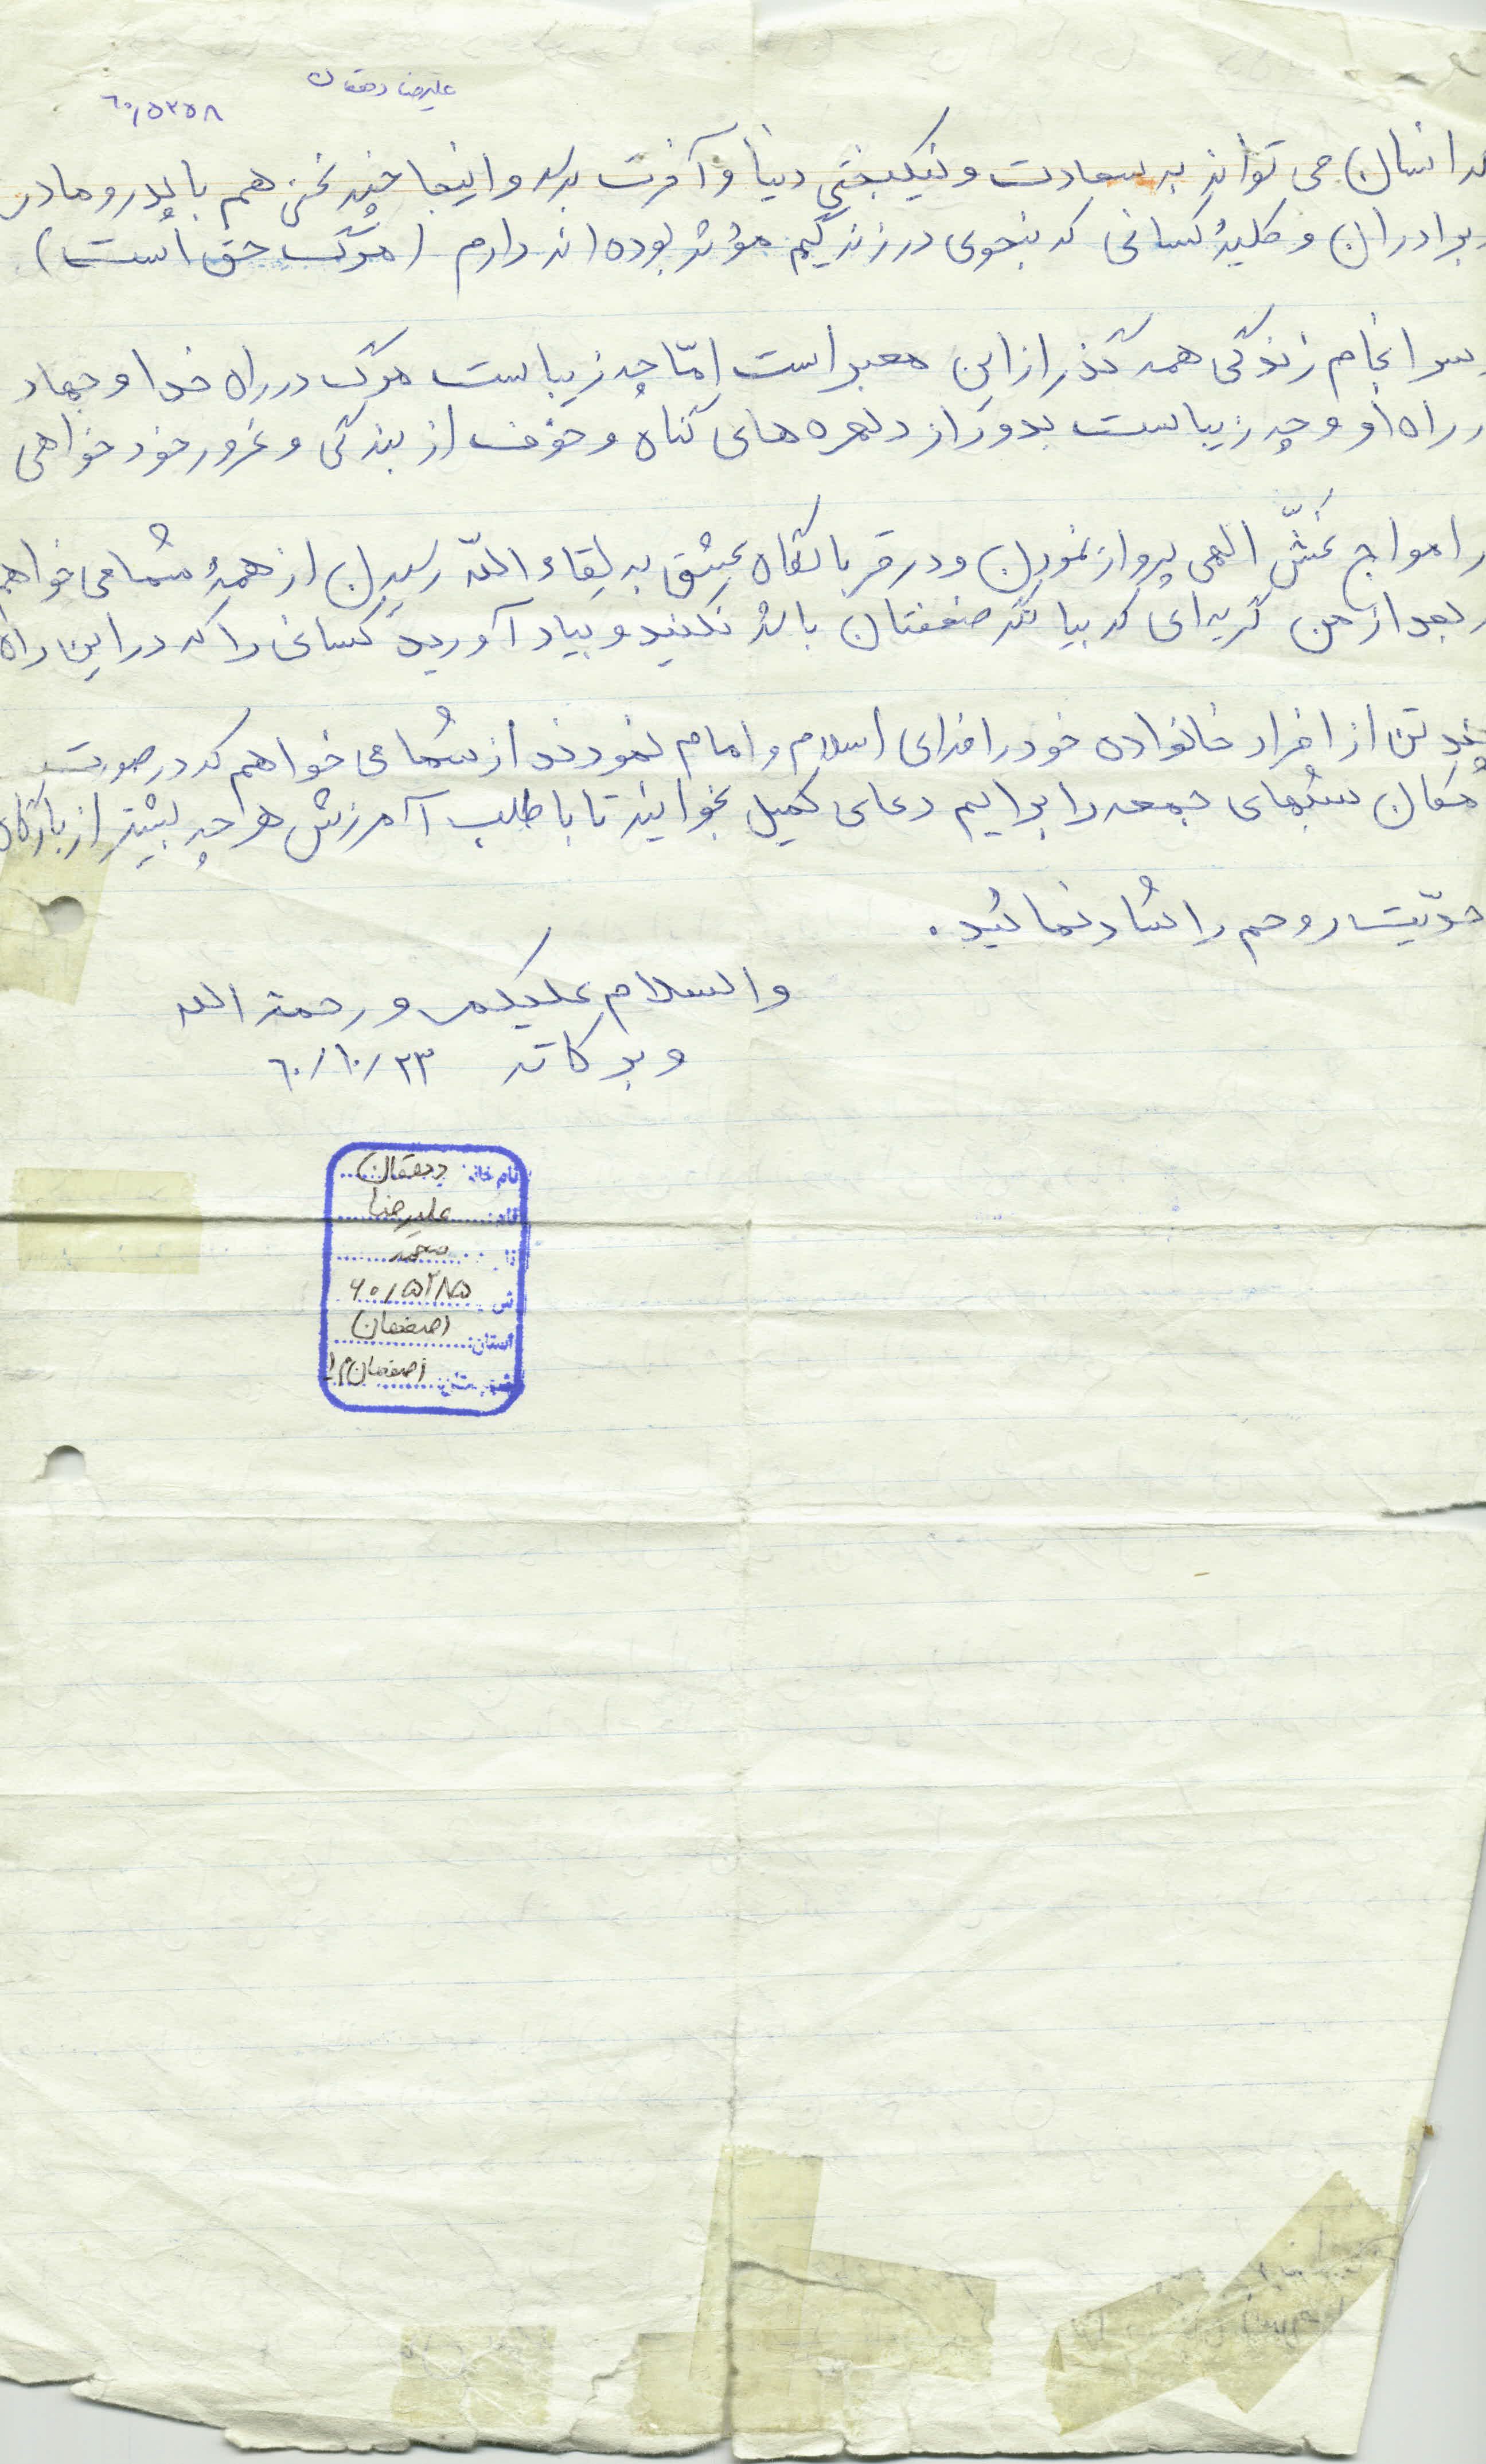 علیرضا دهقان
۶۰/۵۲۵۸
که انسان می تواند به سعادت و نیکبختی دنیا و آخرت برسد و اینجا چند سخنی هم با پدر و مادر
برادران و کلیهٔ کسانی که بنحوی در زندگیم مؤثر بوده اند دارم (مرگ حق است)
سرانجام زندگی همه گذر از این معبر است امّا چه زیباست مرگ در راه خدا و جهاد
در راه او و چه زیباست بدور از دلهره های گناه و خوف از بندگی و غرور خود خواهی
در امواج الهی پرواز نمودن و در قربانگاه عشق به لقاء اللّه رسیدن از همهٔ شما می خواهم
بعد از من گریه ای که بیانگر ضعفتان باشد نکنید و بیاد آورید کسانی را که در این راه
چند تن از افراد خانواده خود را فدای اسلام و امام نمودند از شما می خواهم که در صورت
امکان شبهای جمعه را برایم دعای کمیل بخوانید تا با طلب آمرزش هر چه بیشتر از بارگاه
روحم را شاد نمائید.
والسلام علیکم و رحمة الله
و برکاته ۶۰/۱۰/۲۳
نام خانو: دهقان
نام: علیرضا
محمد
ش ۶۰/۵۲۸۵
استان: اصفهان
اصفهان